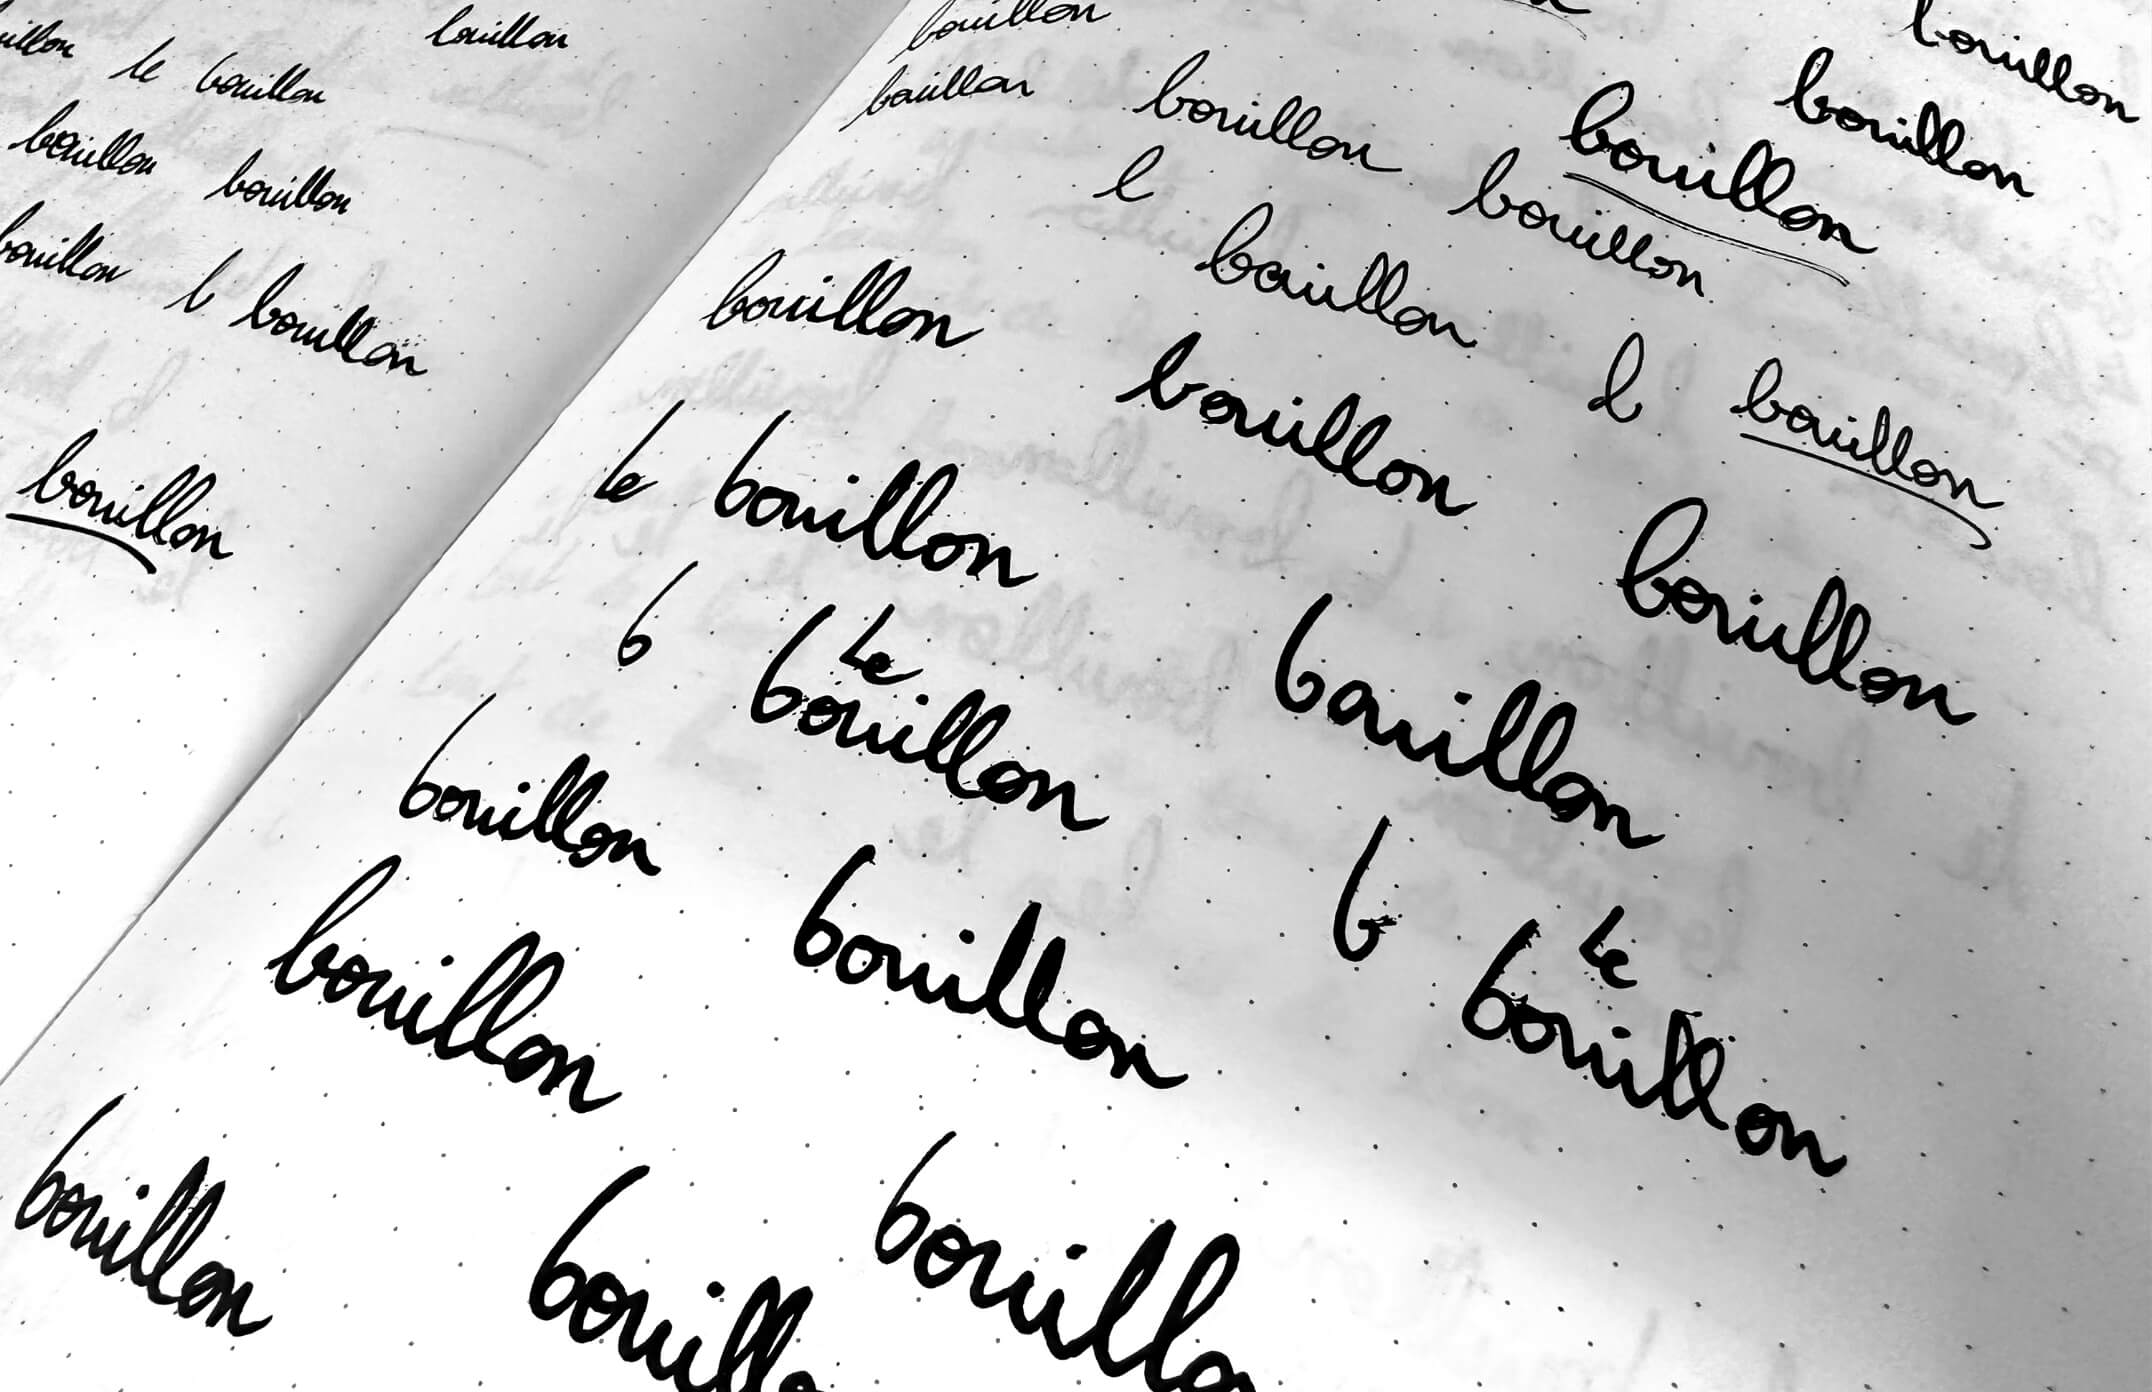 bouillon
le bouillon
bouillon bouillon
bouillon b bouillon
bouillon
bouillon
bouillon
bouillon bouillon bouillon bouillon
l bouillon
bouillon bouillon b bouillon
bouillon
le bouillon bouillon
b Le bouillon bouillon
bouillon bouillon b Le bouillon
bouillon
bouillon